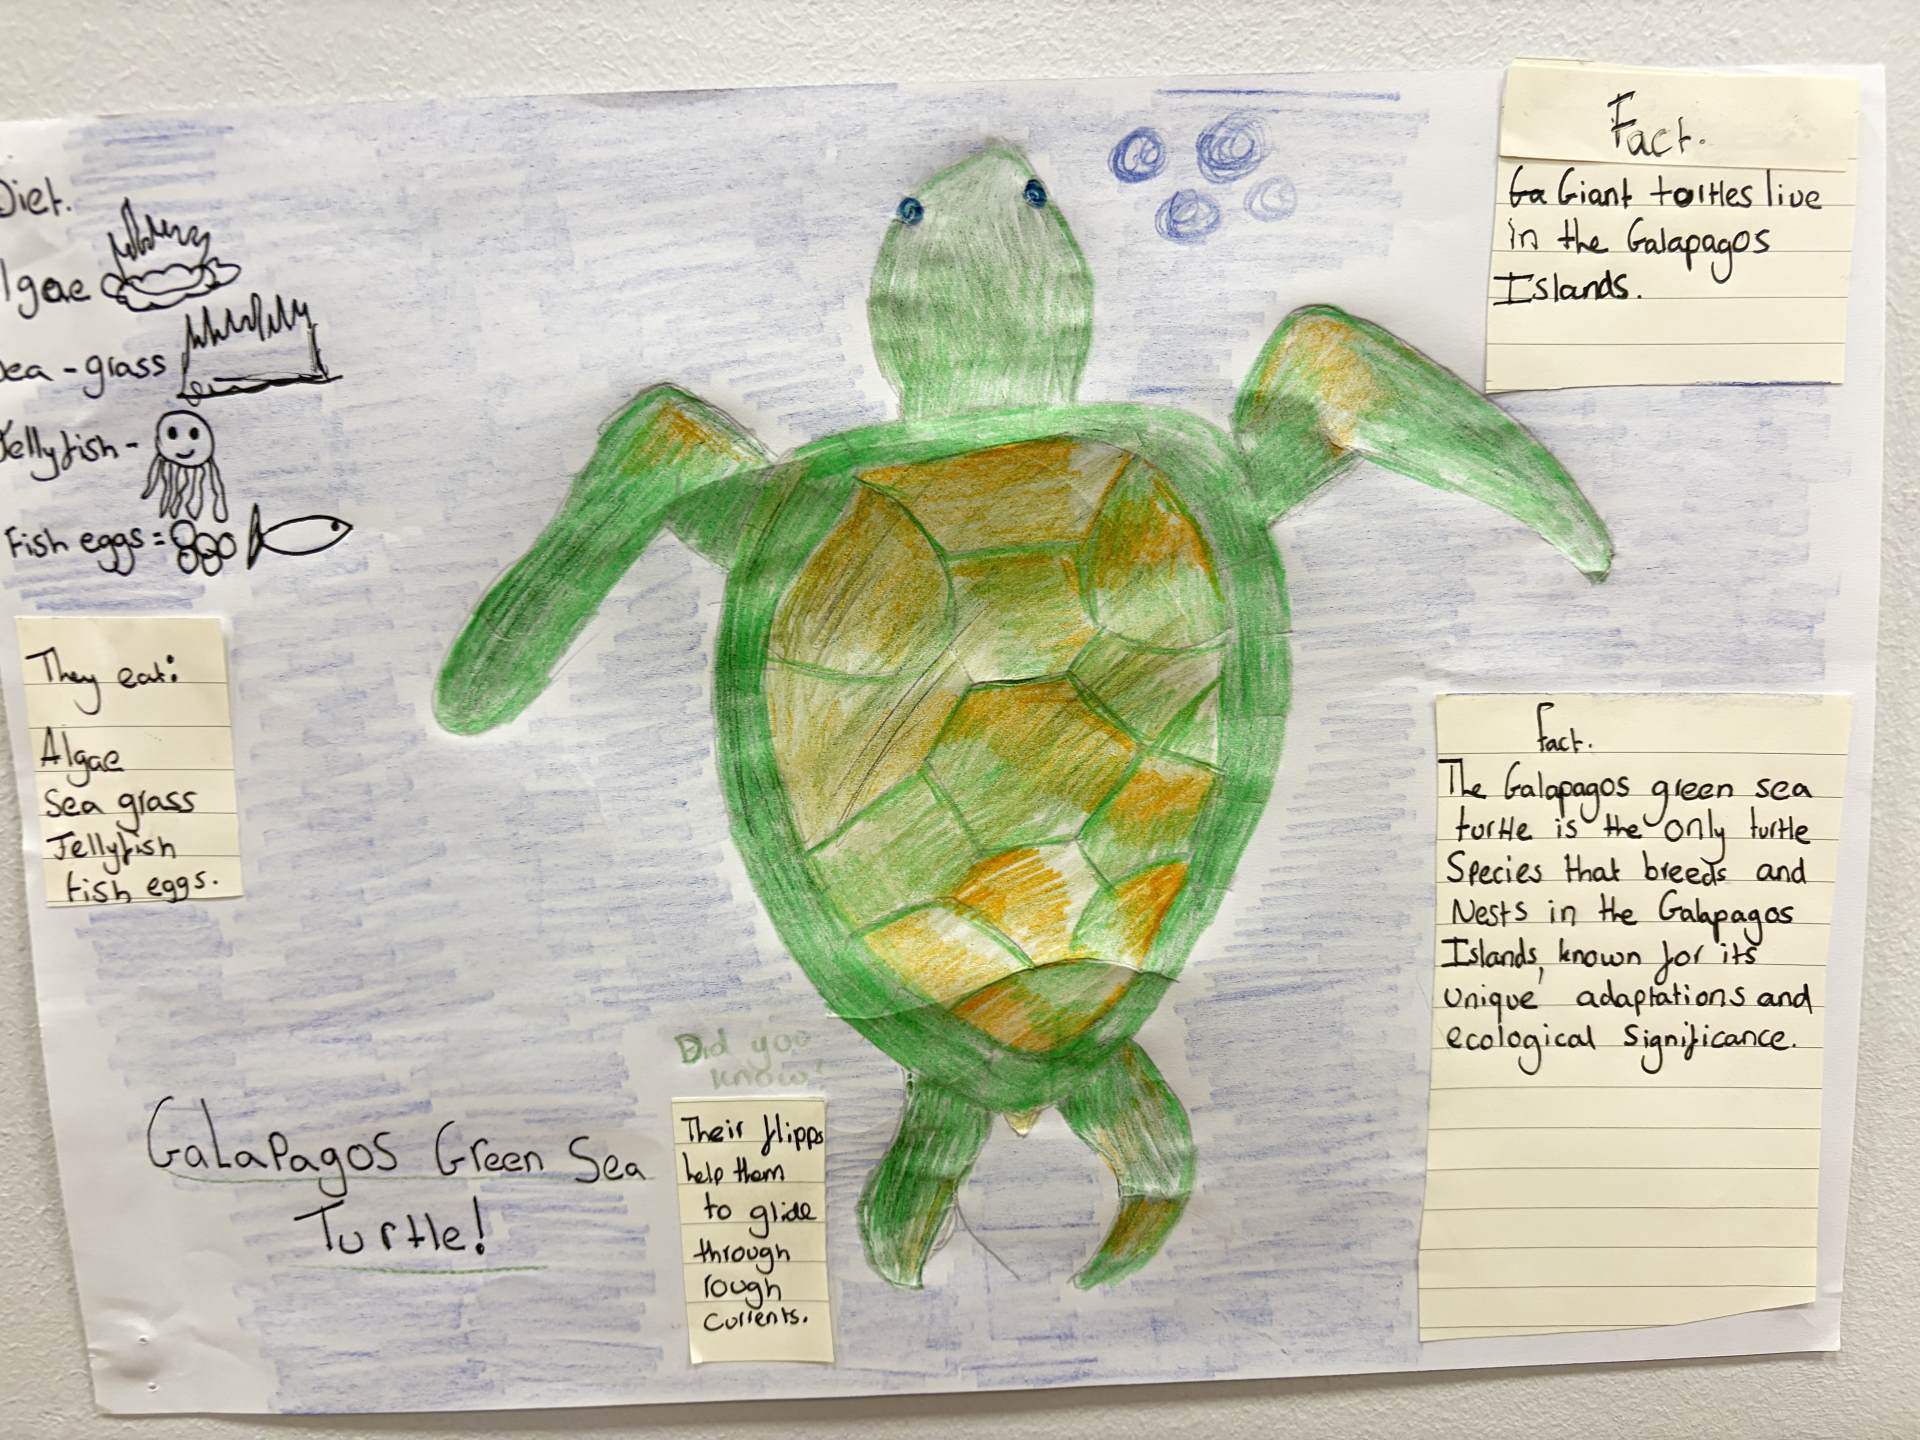 Diet.
Algae
Sea-grass
Jellyfish -
Fish eggs =
They eat:
Algae
Sea grass
Jellyfish
fish eggs.
GaLaPagos Green Sea
Turtle!
Did you
know!
Their flipps
help them
to glide
through
rough
currents.
Fact.
Ga Giant tortles live
in the Galapagos
Islands.
fact.
The Galapagos green sea
turtle is the only turtle
Species that breeds and
Nests in the Galapagos
Islands, known for its
unique adaptations and
ecological significance.